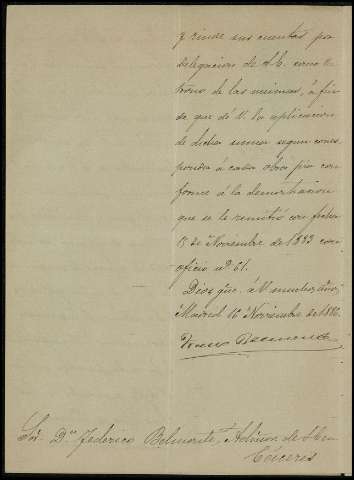 y rinde sus cuentas por
delegacion de S.E. como
de las mismas, á fin
de que dé V. la aplicacion
de dicha suma segun corres
ponda á cada obra pia con
forme á la demostracion
que se le remitió con fecha
15 de Noviembre de 1883 con
oficio nº 61.
Dios gue. á V. muchos años,
Madrid 16 Noviembre de 1886.
Sor. Dn. Federico Belmonte, Admon. de
Cáceres